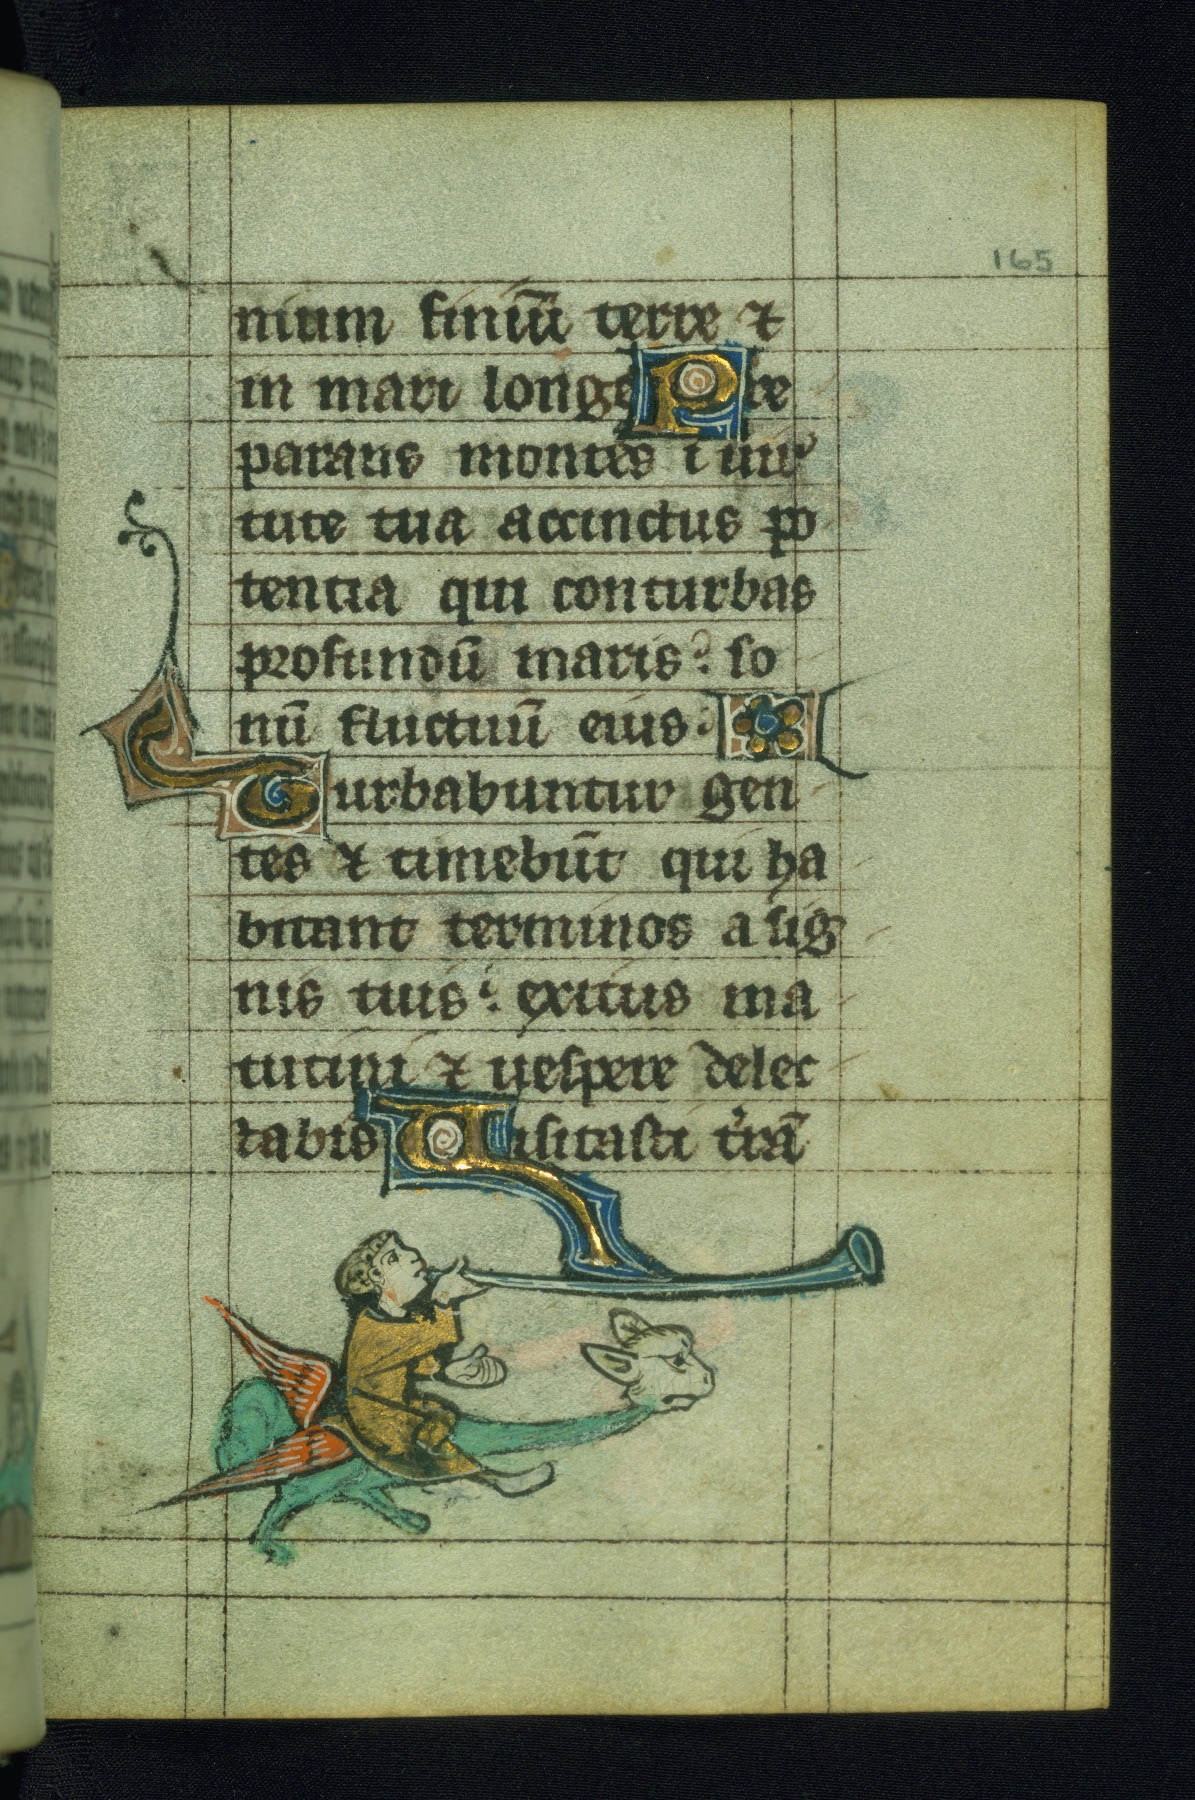 165
nium finiū terre ⁊
in mari longe Pre
parans montes ī uir
tute tua accinctus po
tencia qui conturbas
profundū maris: so
nū fluctuū eius.
Turbabuntur gen
tes ⁊ timebūt qui ha
bitant terminos a sig
nis tuis: exitus ma
tutini ⁊ uespere delec
tabis Uisitasti t̾rā